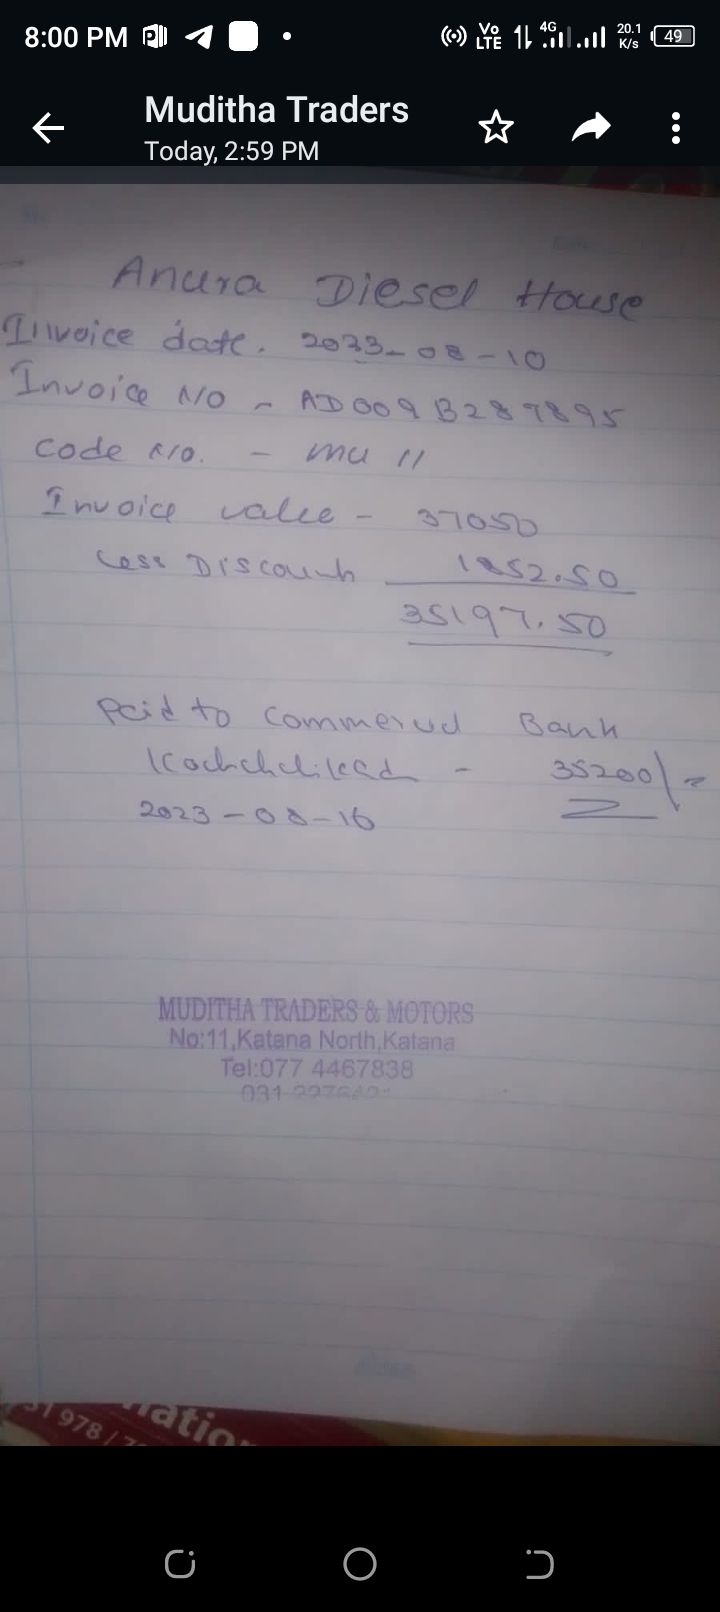 8:00 PM
Vo LTE 4G 20.1 K/s 49
Muditha Traders
Today, 2:59 PM
Anura Diesel House
Invoice date. 2023-08-10
Invoice No - AD009B287895
Code No. - mu 11
Invoice value - 37050
Less Discount 1852.50
35197.50
Paid to Commercial Bank
- 35200/=
2023-08-16
MUDITHA TRADERS & MOTORS
No:11,Katana North,Katana
Tel:077 4467838
031
978 /